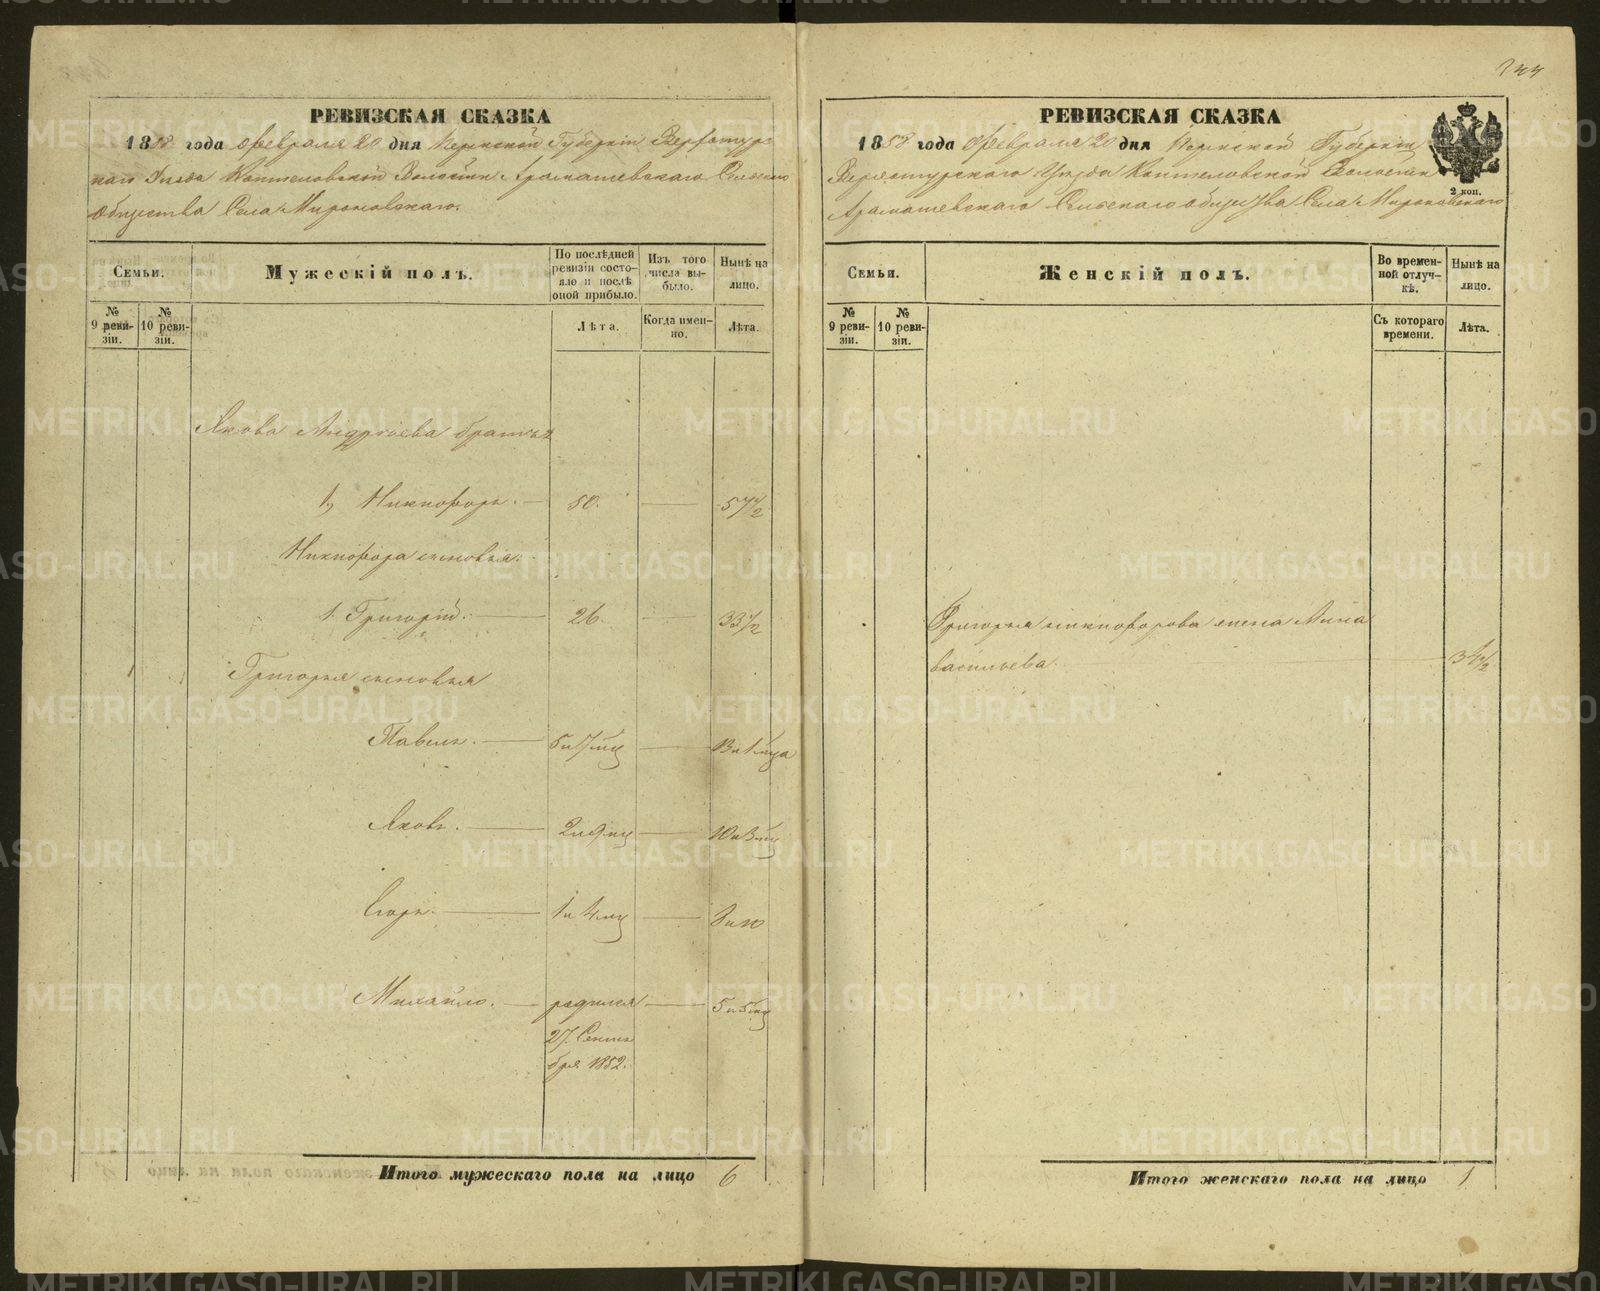 РЕВИЗСКАЯ СКАЗКА
1858 года Февраля 20 дня Пермской Губерніи Верхотурс
каго Уезда Коптеловской Волости Арамашевскаго Сельскаго
общества Села Мироновскаго.
Семьи.
Мужескій полъ.
По послѣдней ревизіи состояло и послѣ оной прибыло.
Изъ того числа выбыло.
Нынѣ на лицо.
№ 9 ревизіи.
№ 10 ревизіи.
Лѣта.
Когда именно.
Лѣта.
Якова Андреева братья
1, Никифоръ. — 50. — 57 1/2
Никифора сыновья:
1. Григорій. — 26. — 33 1/2
Григорья сыновья
Павелъ. — 5 и 7 мц — 13 и 1 мца
Яковъ. — 2 и 9 мц — 10 и 3 мц
Егоръ. — 1 и 4 мц — 8 и 10
Михайло. — родился — 5 и 5 мц
27. Сентя
бря 1852.
Итого мужескаго пола на лицо 6
244
РЕВИЗСКАЯ СКАЗКА
1858 года Февраля 20 дня Пермской Губерніи
Верхотурскаго Уезда Коптеловской Волости
Арамашевскаго Сельскаго общества Села Мироновскаго
2 коп.
Семьи.
Женскій полъ.
Во временной отлучкѣ.
Нынѣ на лицо.
№ 9 ревизіи.
№ 10 ревизіи.
Съ котораго времени.
Лѣта.
Григорья никифорова жена Анна
васильева. — 34 1/2
Итого женскаго пола на лицо 1
METRIKI.GASO-URAL.RU